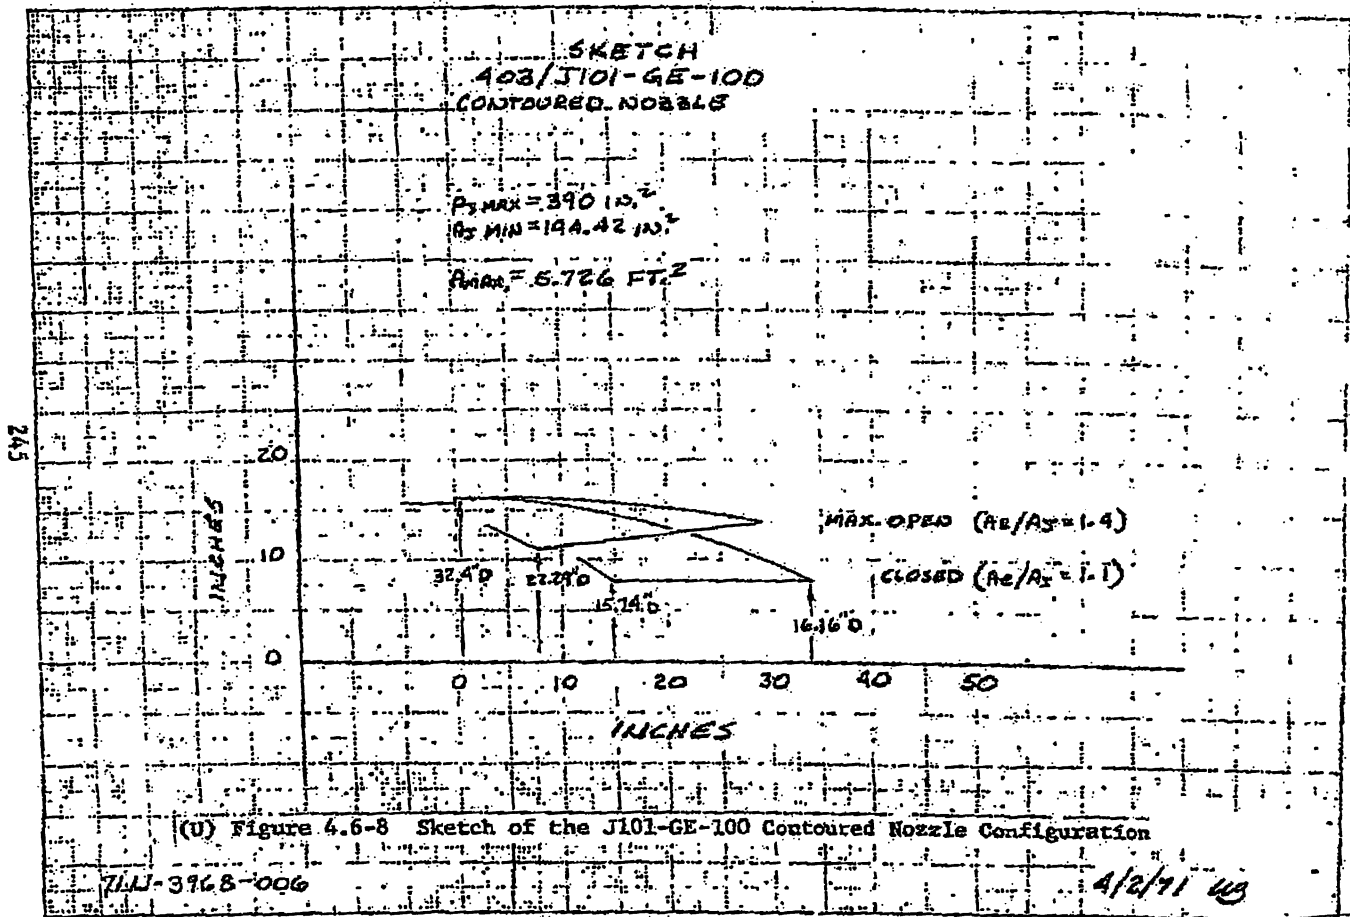 SKETCH
403/J101-GE-100
CONTOURED NOZZLE
AJ MAX = 390 IN.²
AJ MIN = 194.42 IN.²
AMAX = 5.726 FT.²
245
20
INCHES
10
0
MAX. OPEN (Ae/AJ = 1.4)
CLOSED (Ae/AJ = 1.1)
32.4"D
22.29"D
15.74"D
16.16"D
0 10 20 30 40 50
INCHES
(U) Figure 4.6-8 Sketch of the J101-GE-100 Contoured Nozzle Configuration
4/2/71